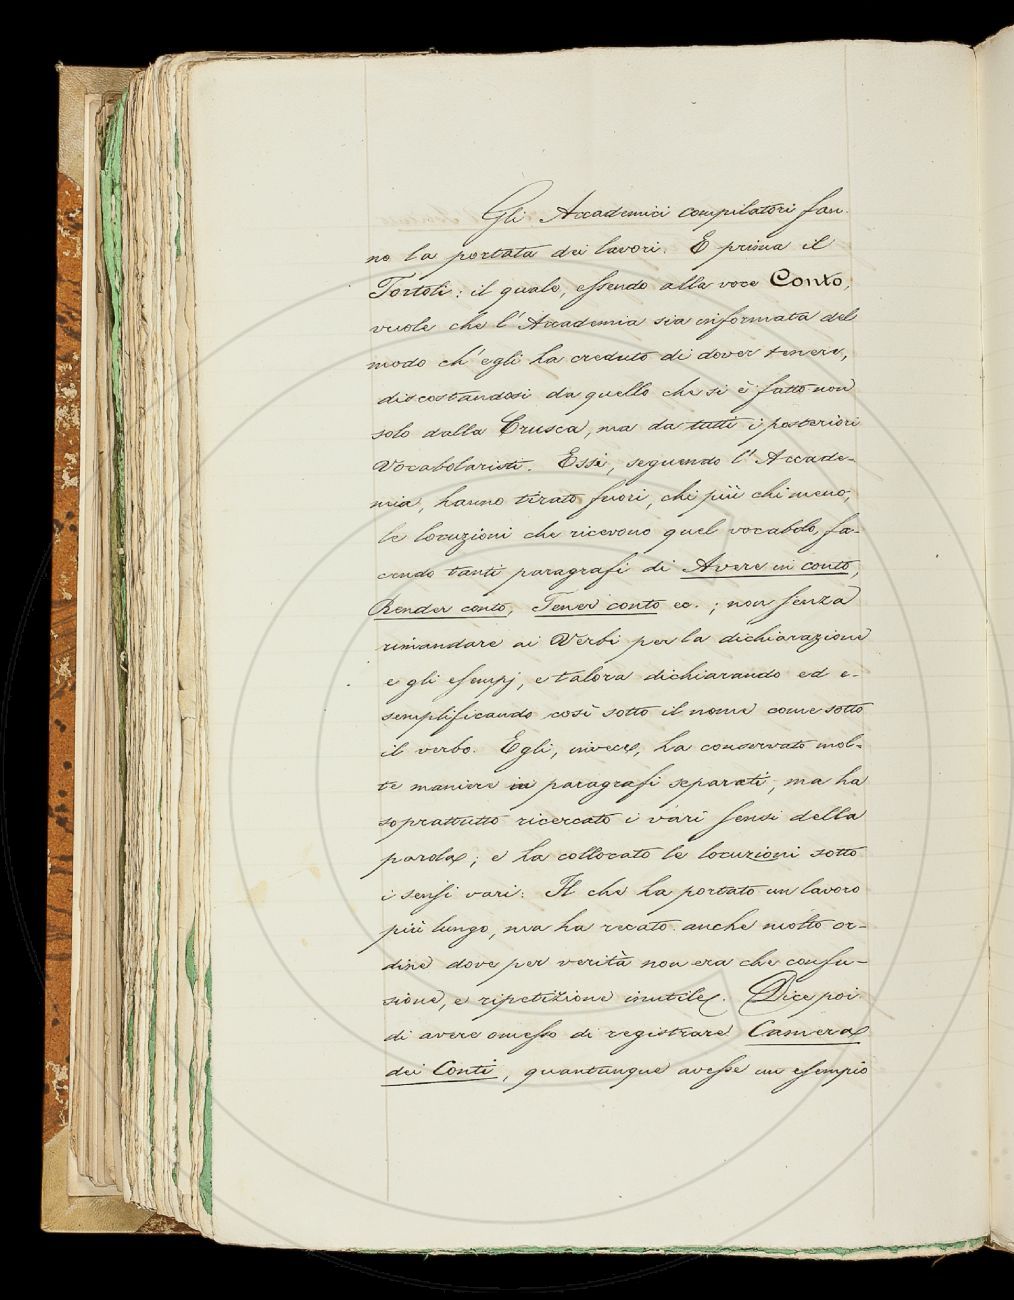 Gli Accademici compilatori fan-
no la portata dei lavori. E prima il
Tortoli: il quale, essendo alla voce Conto,
vuole che l'Accademia sia informata del
modo ch'egli ha creduto di dover tenere,
discostandosi da quello che si è fatto non
solo dalla Crusca, ma da tutti i posteriori
Vocabolaristi. Essi, seguendo l'Accade-
mia, hanno tirato fuori, chi più chi meno,
le locuzioni che ricevono quel vocabolo, fa-
cendo tanti paragrafi di Avere in conto,
Render conto, Tener conto ec.; non senza
rimandare ai Verbi per la dichiarazione
e gli esempj, e talora dichiarando ed e-
semplificando così sotto il nome come sotto
il verbo. Egli, invece, ha conservato mol-
te maniere in paragrafi separati, ma ha
soprattutto ricercato i varî sensi della
parola; e ha collocato le locuzioni sotto
i sensi vari: Il che ha portato un lavoro
più lungo, ma ha recato anche molto or-
dine dove per verità non era che confu-
sione, e ripetizione inutile. Dice poi
di avere omesso di registrare Camera
dei Conti, quantunque avesse un esempio